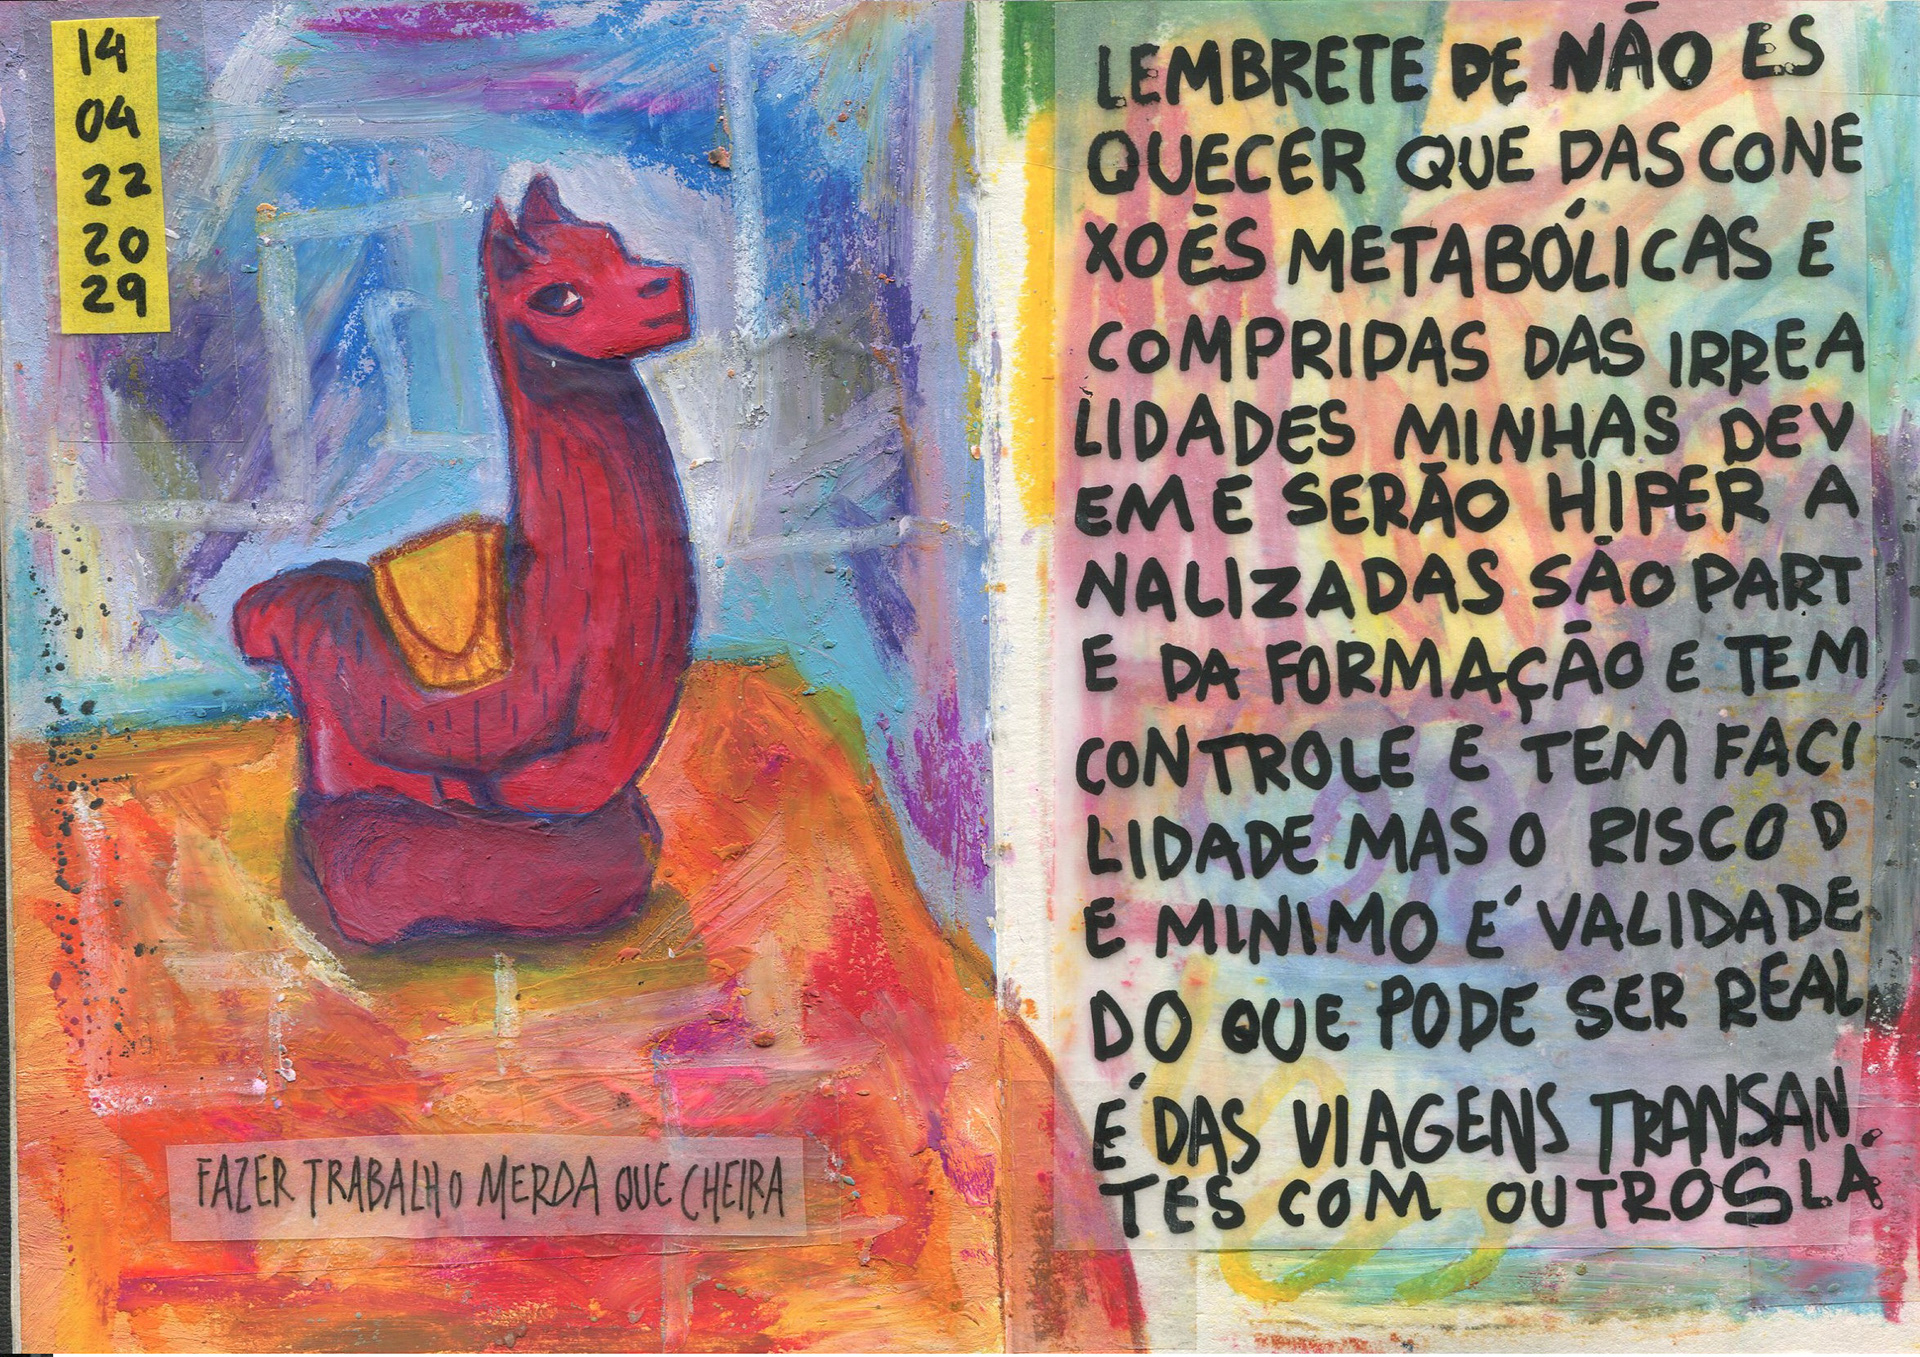 14
04
22
20
29
FAZER TRABALHO MERDA QUE CHEIRA
LEMBRETE DE NÃO ES
QUECER QUE DAS CONE
XOÈS METABÓLICAS E
COMPRIDAS DAS IRREA
LIDADES MINHAS DEV
EM E SERÃO HIPER A
NALIZADAS SÃO PART
E DA FORMAÇÃO E TEM
CONTROLE E TEM FACI
LIDADE MAS O RISCO D
E MINIMO É VALIDADE
DO QUE PODE SER REAL
É DAS VIAGENS TRANSAN
TES COM OUTROS LÁ